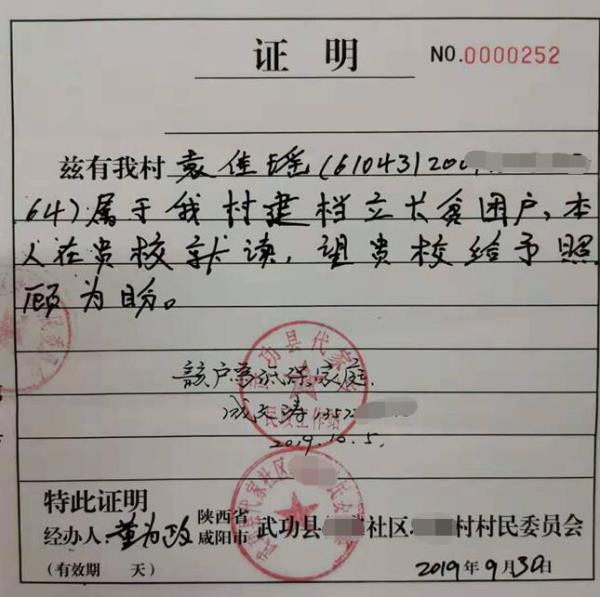 证明
NO.0000252
兹有我村 袁佳瑶(61043120
64)属于我村建档立卡贫困户,本
人在贵校就读,望贵校给予照
顾为盼。
该户为低保家庭.
成文涛 1352
2019.10.5.
武功县代家
民政工作站
特此证明
经办人 董为政 陕西省咸阳市 武功县 社区 村村民委员会
(有效期 天)
2019年9月30日